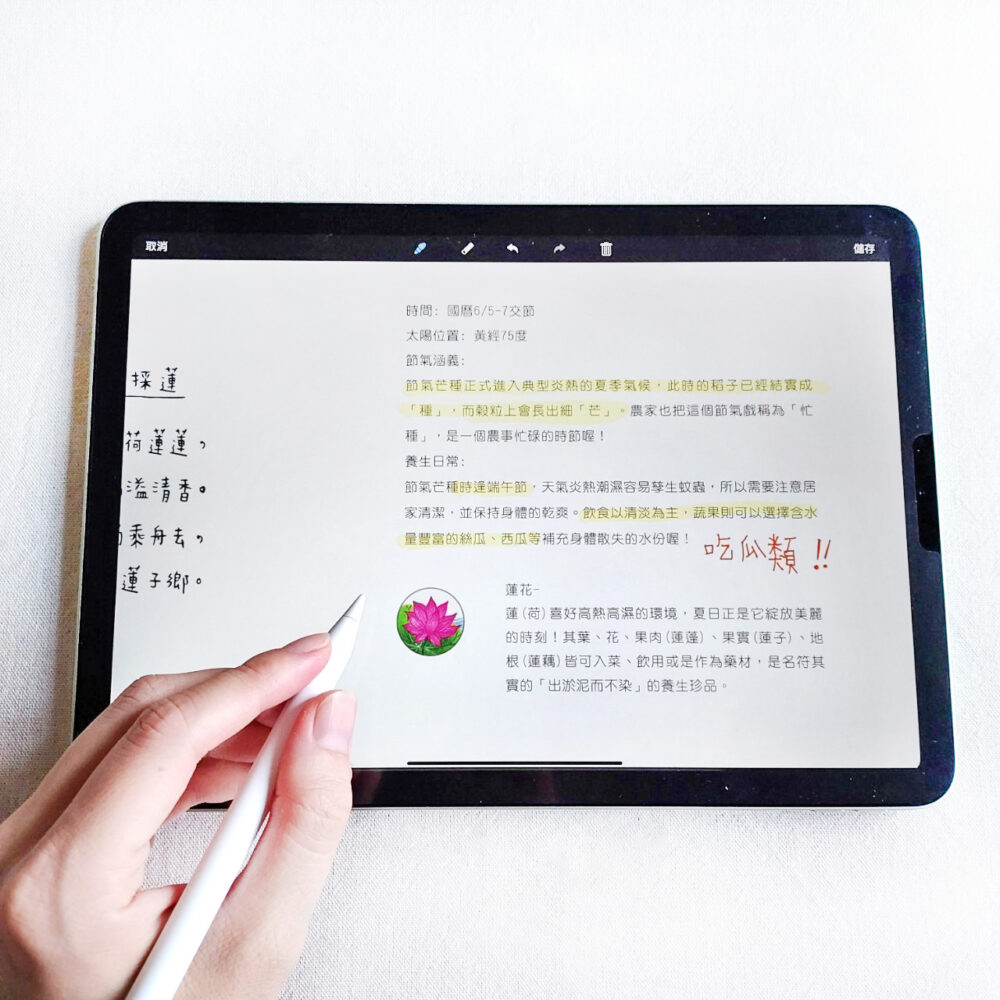 取消
儲存
採蓮
荷蓮蓮，
溢清香。
乘舟去，
蓮子鄉。
時間: 國曆6/5-7交節
太陽位置: 黃經75度
節氣涵義:
節氣芒種正式進入典型炎熱的夏季氣候，此時的稻子已經結實成
「種」，而穀粒上會長出細「芒」。農家也把這個節氣戲稱為「忙
種」，是一個農事忙碌的時節喔！
養生日常:
節氣芒種時逢端午節，天氣炎熱潮濕容易孳生蚊蟲，所以需要注意居
家清潔，並保持身體的乾爽。飲食以清淡為主，蔬果則可以選擇含水
量豐富的絲瓜、西瓜等補充身體散失的水份喔！
吃瓜類!!
蓮花-
蓮(荷)喜好高熱高濕的環境，夏日正是它綻放美麗
的時刻！其葉、花、果肉(蓮蓬)、果實(蓮子)、地
根(蓮藕)皆可入菜、飲用或是作為藥材，是名符其
實的「出淤泥而不染」的養生珍品。